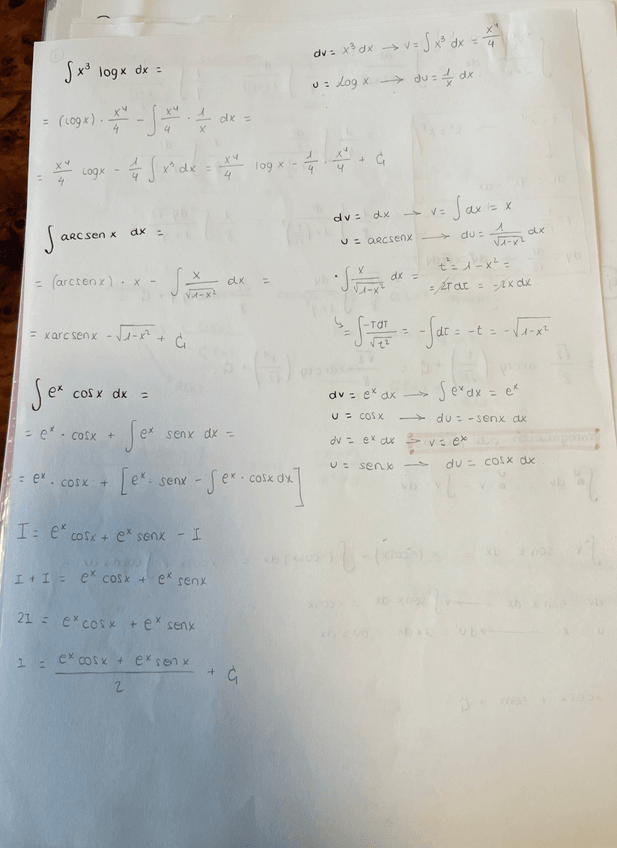 ∫ x³ log x dx =
dv = x³ dx → v = ∫ x³ dx = x⁴/4
u = log x → du = 1/x dx
= (log x) · x⁴/4 - ∫ x⁴/4 · 1/x dx =
= x⁴/4 log x - 1/4 ∫ x³ dx = x⁴/4 log x - 1/4 · x⁴/4 + C₁
∫ arcsen x dx =
dv = dx → v = ∫ dx = x
u = arcsenx → du = 1/√(1-x²) dx
= (arcsen x) · x - ∫ x/√(1-x²) dx =
· ∫ x/√(1-x²) dx = t² = 1 - x² =
= 2tdt = -2x dx
= xarcsen x - √(1-x²) + C₁
↳ = ∫ -tdt/√t² = - ∫ dt = -t = -√(1-x²)
∫ eˣ cosx dx =
dv = eˣ dx → ∫ eˣ dx = eˣ
u = cosx → du = -senx dx
= eˣ · cosx + ∫ eˣ senx dx =
dv = eˣ dx → v = eˣ
u = senx → du = cosx dx
= eˣ · cosx + [eˣ · senx - ∫ eˣ · cosx dx]
I = eˣ cosx + eˣ senx - I
I + I = eˣ cosx + eˣ senx
2I = eˣ cosx + eˣ senx
I = (eˣ cosx + eˣ senx)/2 + C₁